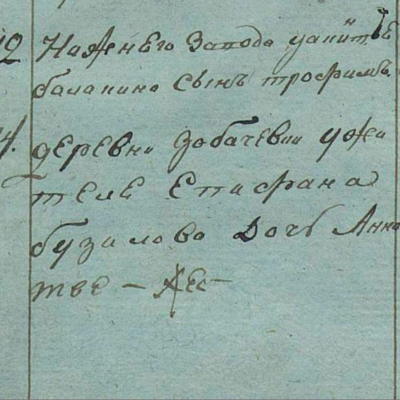 12 Нижнего завода у апїта
балакина сынъ трофимъ
4. деревни Зобачевки ужи
теле Епифана
бузилова дочь Анна
тве – Хес –